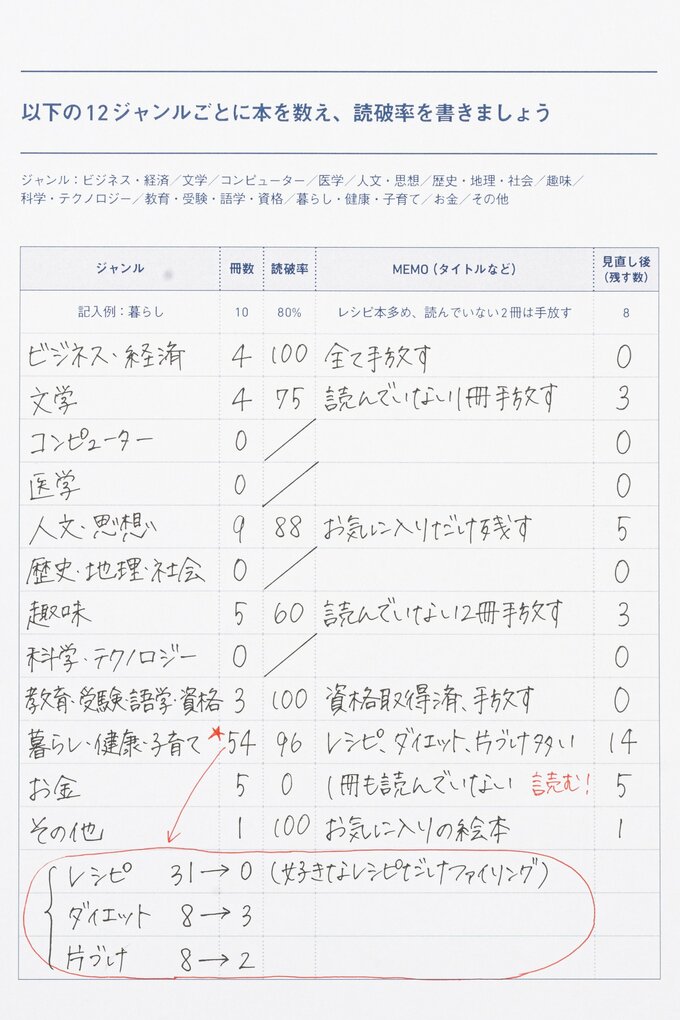 以下の12ジャンルごとに本を数え、読破率を書きましょう
ジャンル：ビジネス・経済／文学／コンピューター／医学／人文・思想／歴史・地理・社会／趣味／
科学・テクノロジー／教育・受験・語学・資格／暮らし・健康・子育て／お金／その他
ジャンル 冊数 読破率 MEMO（タイトルなど） 見直し後（残す数）
記入例：暮らし 10 80% レシピ本多め、読んでいない2冊は手放す 8
ビジネス・経済 4 100 全て手放す 0
文学 4 75 読んでいない1冊手放す 3
コンピューター 0 ／ 0
医学 0 ／ 0
人文・思想 9 88 お気に入りだけ残す 5
歴史・地理・社会 0 ／ 0
趣味 5 60 読んでいない2冊手放す 3
科学・テクノロジー 0 ／ 0
教育・受験・語学・資格 3 100 資格取得済、手放す 0
暮らし・健康・子育て ★54 96 レシピ、ダイエット、片づけ多い 14
お金 5 0 1冊も読んでいない 読む! 5
その他 1 100 お気に入りの絵本 1
レシピ 31→0 (好きなレシピだけファイリング)
ダイエット 8→3
片づけ 8→2